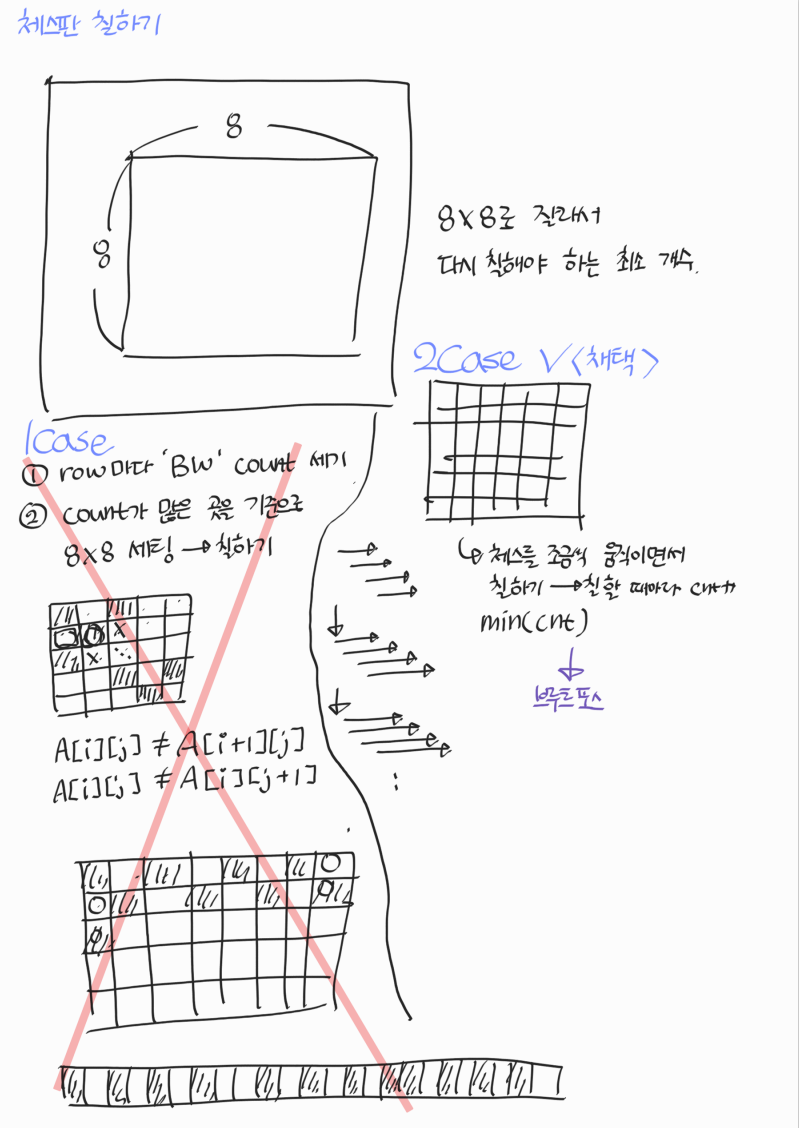 체스판 칠하기
8
8
8×8로 잘라서
다시 칠해야 하는 최소 개수.
1Case
① row마다 'BW' count 세기
② count가 많은 곳을 기준으로
8×8 세팅 → 칠하기
A[i][j] ≠ A[i+1][j]
A[i][j] ≠ A[i][j+1]
2Case ✓ <채택>
↳ 체스를 조금씩 움직이면서
칠하기 → 칠할 때마다 cnt++
min(cnt)
↓
브루트포스